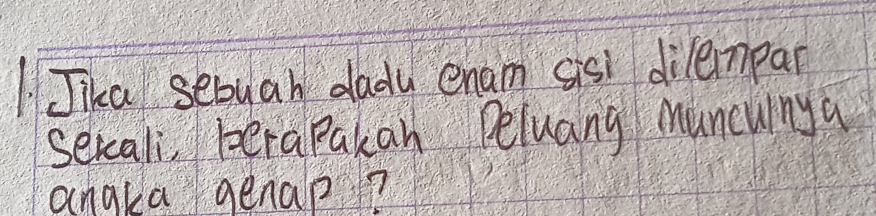 1. Jika sebuah dadu enam sisi dilempar
sekali, berapakah Peluang munculnya
angka genap?